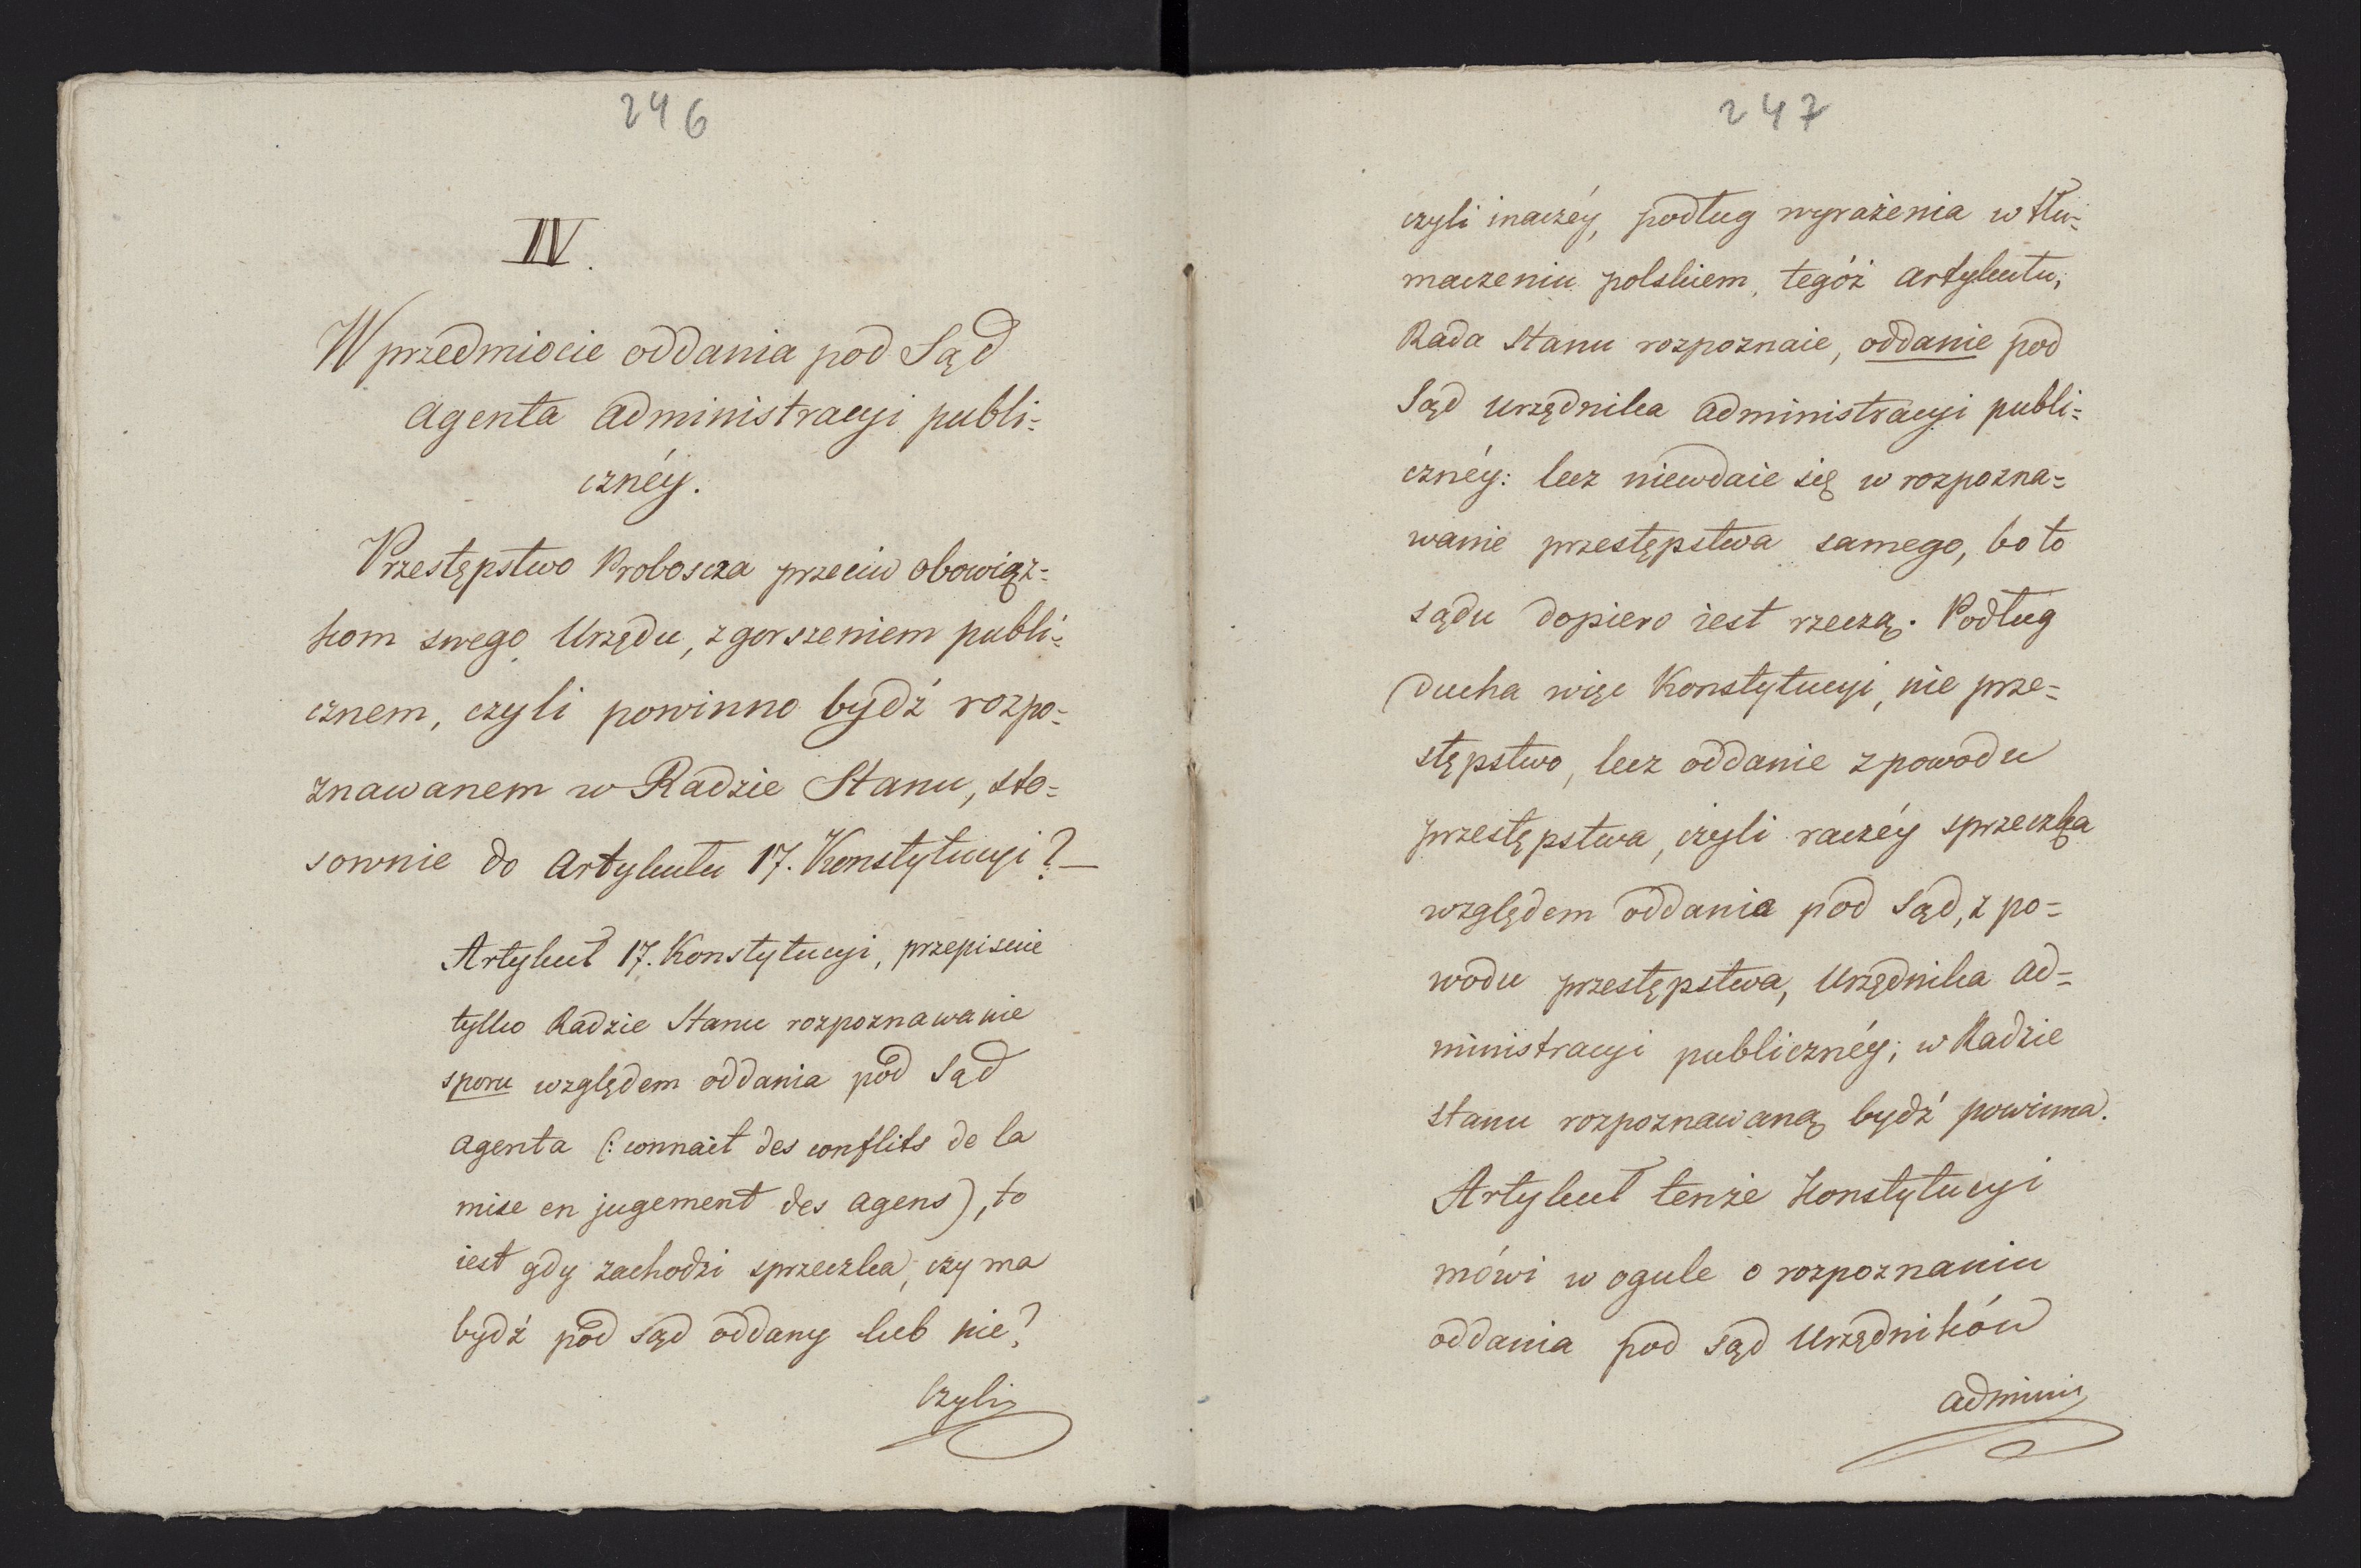 246
IV.
W przedmiocie oddania pod Sąd
Agenta Administracyi publi=
cznéy.
Przestępstwo Proboscza przeciw obowiąz=
kom swego Urzędu, zgorszeniem publi=
cznem, czyli powinno bydź rozpo=
znawanem w Radzie Stanu, sto=
sownie do Artykułu 17. Konstytucyi? —
Artykuł 17. Konstytucyi, przepisuie
tylko Radzie Stanu rozpoznawanie
sporu względem oddania pod Sąd
Agenta (: connait des conflits de la
mise en jugement des agens), to
iest gdy zachodzi sprzeczka, czy ma
bydź pod Sąd oddany lub nie?
Czyli
247
czyli inaczéy, podług wyrażenia w tłu=
maczeniu polskiem, tegóż Artykułu,
Rada Stanu rozpoznaie, oddanie pod
Sąd Urzędnika Administracyi publi=
cznéy: lecz niewdaie się w rozpozna=
wanie przestępstwa samego, bo to
sądu dopiero iest rzeczą. Podług
Ducha więc Konstytucyi, nie prze=
stępstwo, lecz oddanie z powodu
przestępstwa, czyli raczéy sprzeczka
względem oddania pod Sąd, z po=
wodu przestępstwa, Urzędnika Ad=
ministracyi publicznéy; w Radzie
Stanu rozpoznawaną bydź powinna.
Artykuł tenże Konstytucyi
mówi w ogule o rozpoznaniu
oddania pod Sąd Urzędników
Adminis